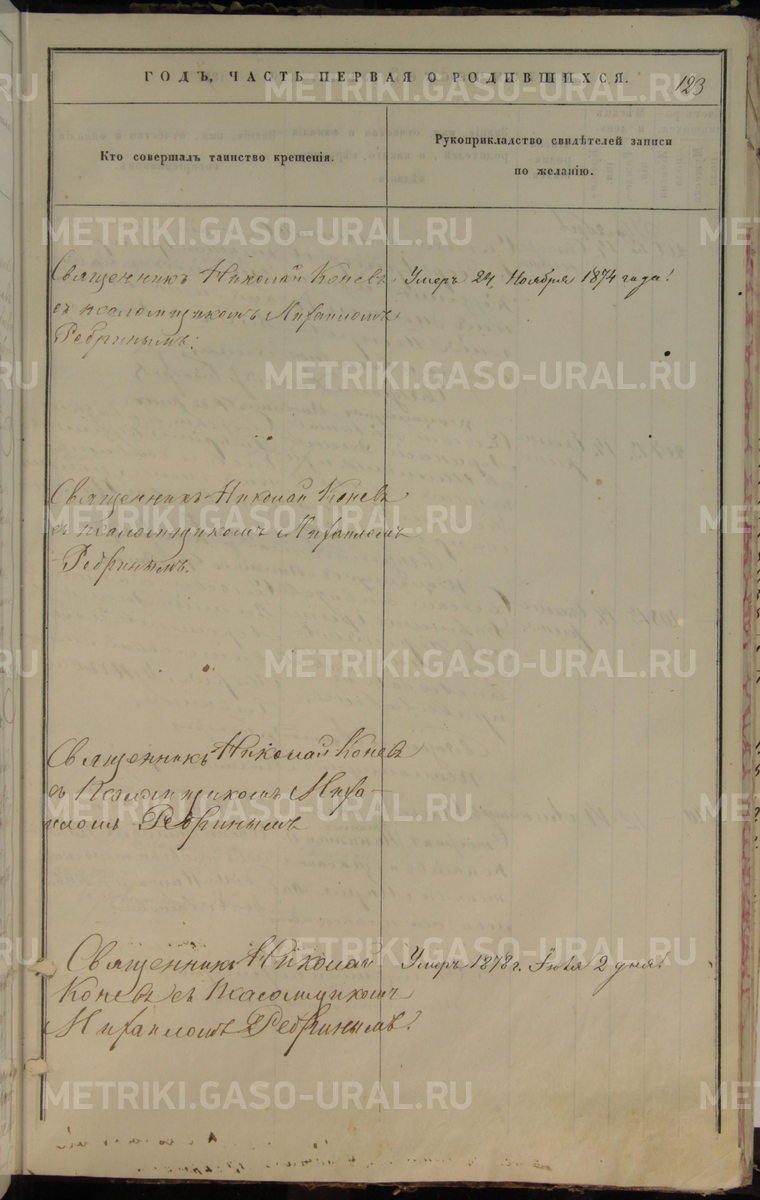 ГОДЪ, ЧАСТЬ ПЕРВАЯ О РОДИВШИХСЯ.
123
Кто совершалъ таинство крещенія.
Рукоприкладство свидѣтелей записи
по желанію.
Священникъ Николай Коневъ
съ псаломщикомъ Михаиломъ
Ребринымъ.
Умеръ 24, Ноября 1874 года!
Священникъ Николай Коневъ
съ псаломщикомъ Михаиломъ
Ребринымъ.
Священникъ Николай Коневъ
съ Псаломщикомъ Миха-
иломъ Ребринымъ
Священникъ Николай
Коневъ съ Псаломщикомъ
Михаиломъ Ребринымъ.
Умеръ 1878 г. Іюля 2 дня!
METRIKI.GASO-URAL.RU